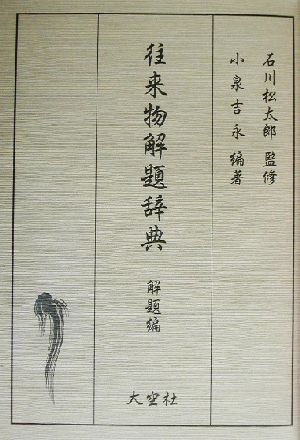 石川松太郎 監修
小泉吉永 編著
往来物解題辞典 解題編
大空社